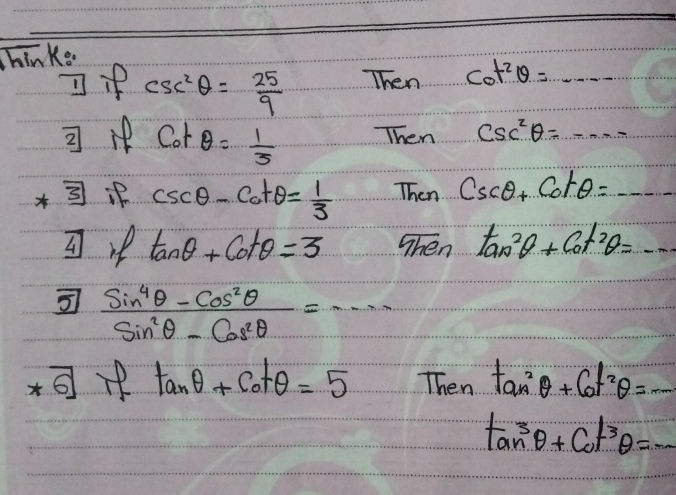 Think:
1 if csc²θ = 25/9 Then cot²θ = -----
2 if Cot θ = 1/3 Then Csc²θ = ----
* 3 if cscθ - Cotθ = 1/3 Then Cscθ + Cotθ = -----
4 if tanθ + Cotθ = 3 Then tan²θ + Cot²θ = ---
5 (Sin⁴θ - Cos²θ)/(Sin²θ - Cos²θ) = ----
* 6 if tanθ + Cotθ = 5 Then tan²θ + Cot²θ = ---
tan³θ + Cot³θ = ---